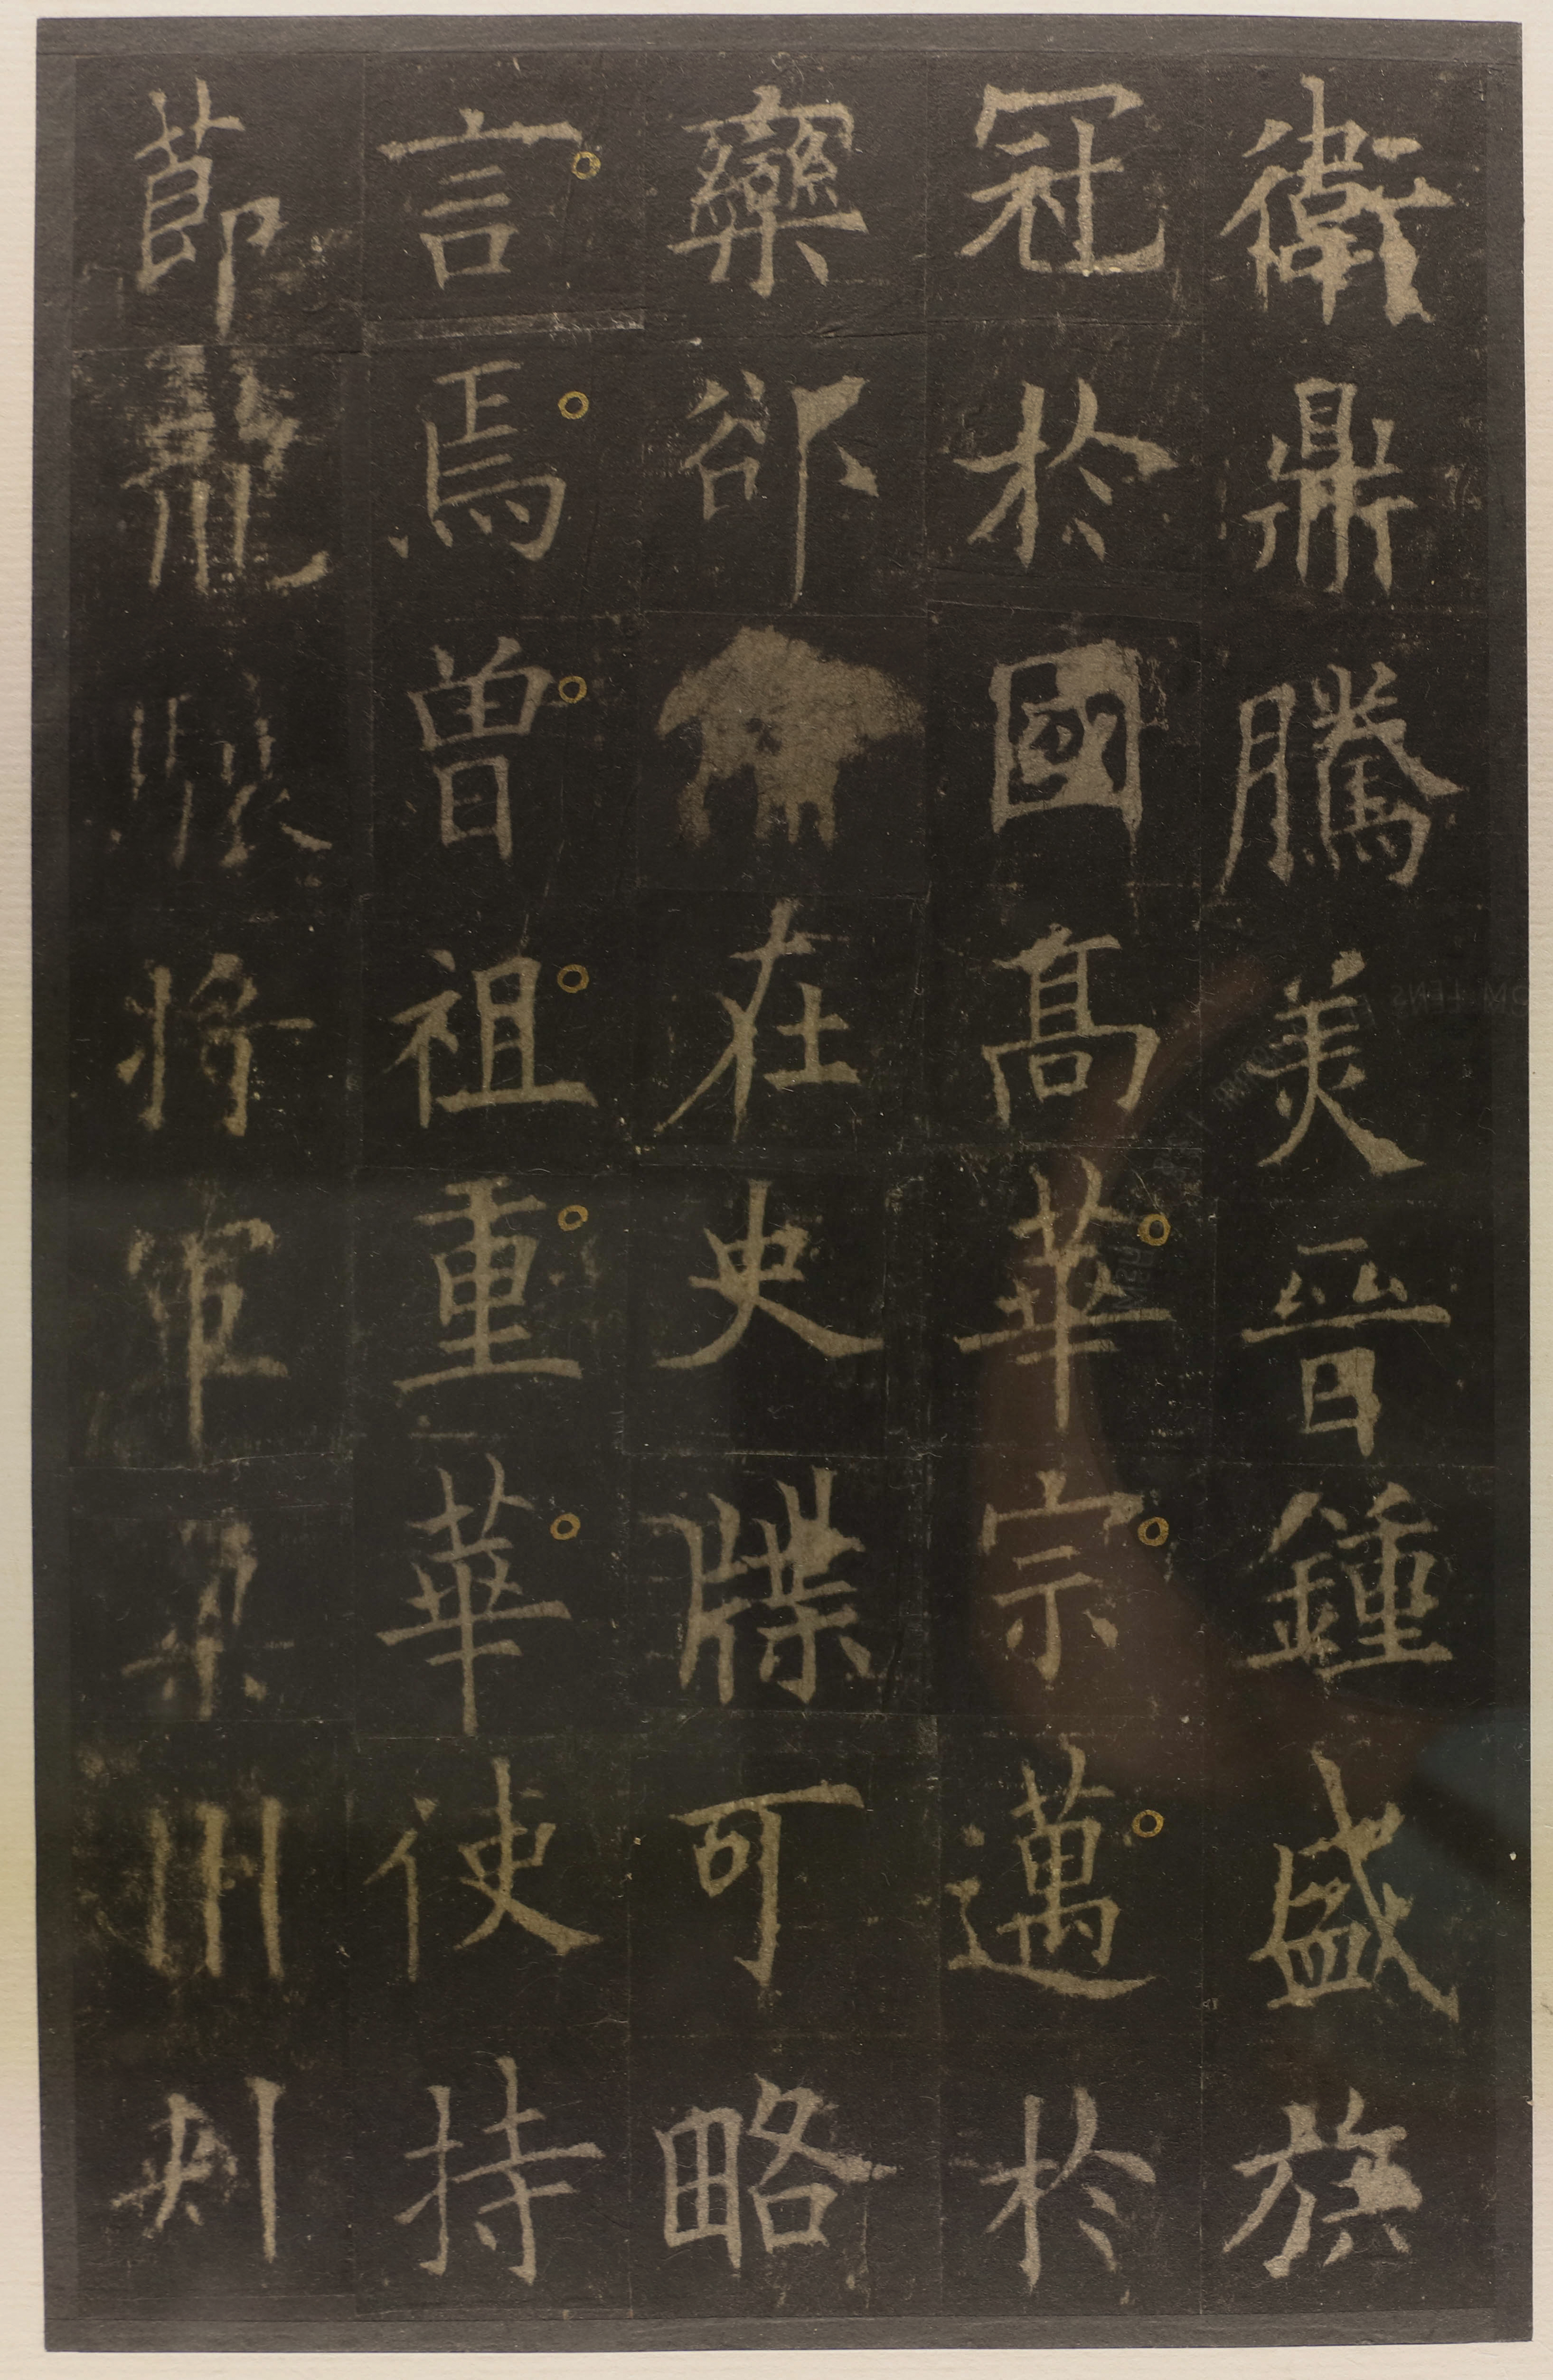 衛鼎騰美晉鍾盛族
冠於國高華宗邁於
欒郤在史牒可略
言焉曾祖重華使持
節龍驤將軍梁州刺